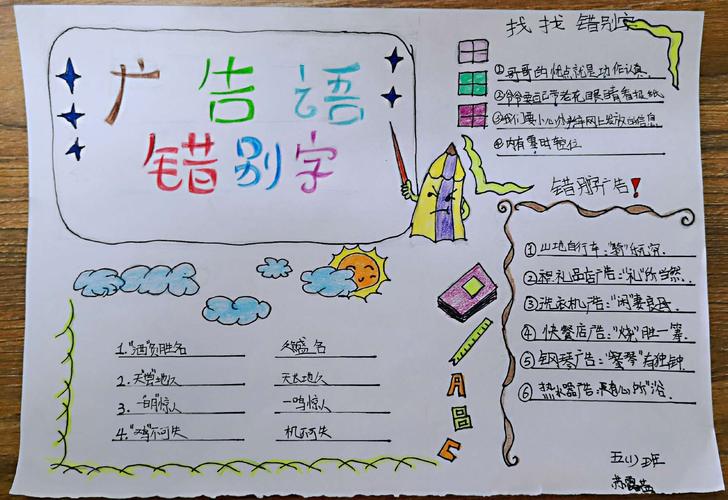 广告语
错别字
找找错别字
①哥哥的优点就是功作认真.
②爷爷要自己带老花眼睛看报纸
③我们要小心 网上发放的信息
④内有 时 位
错别广告!
①山地自行车:"骑"乐无穷.
②礼品店广告:"礼"所当然.
③洗衣机广告:"闲"妻良母.
④快餐店广告:"烧"胜一筹.
⑤钢琴广告:"琴"有独钟
⑥热水器广告:随心所"浴.
1."酒"负胜名 久盛名
2.天"尝"地久 天长地久
3.一"明"惊人 一鸣惊人
4."鸡"不可失 机不可失
五(1)班